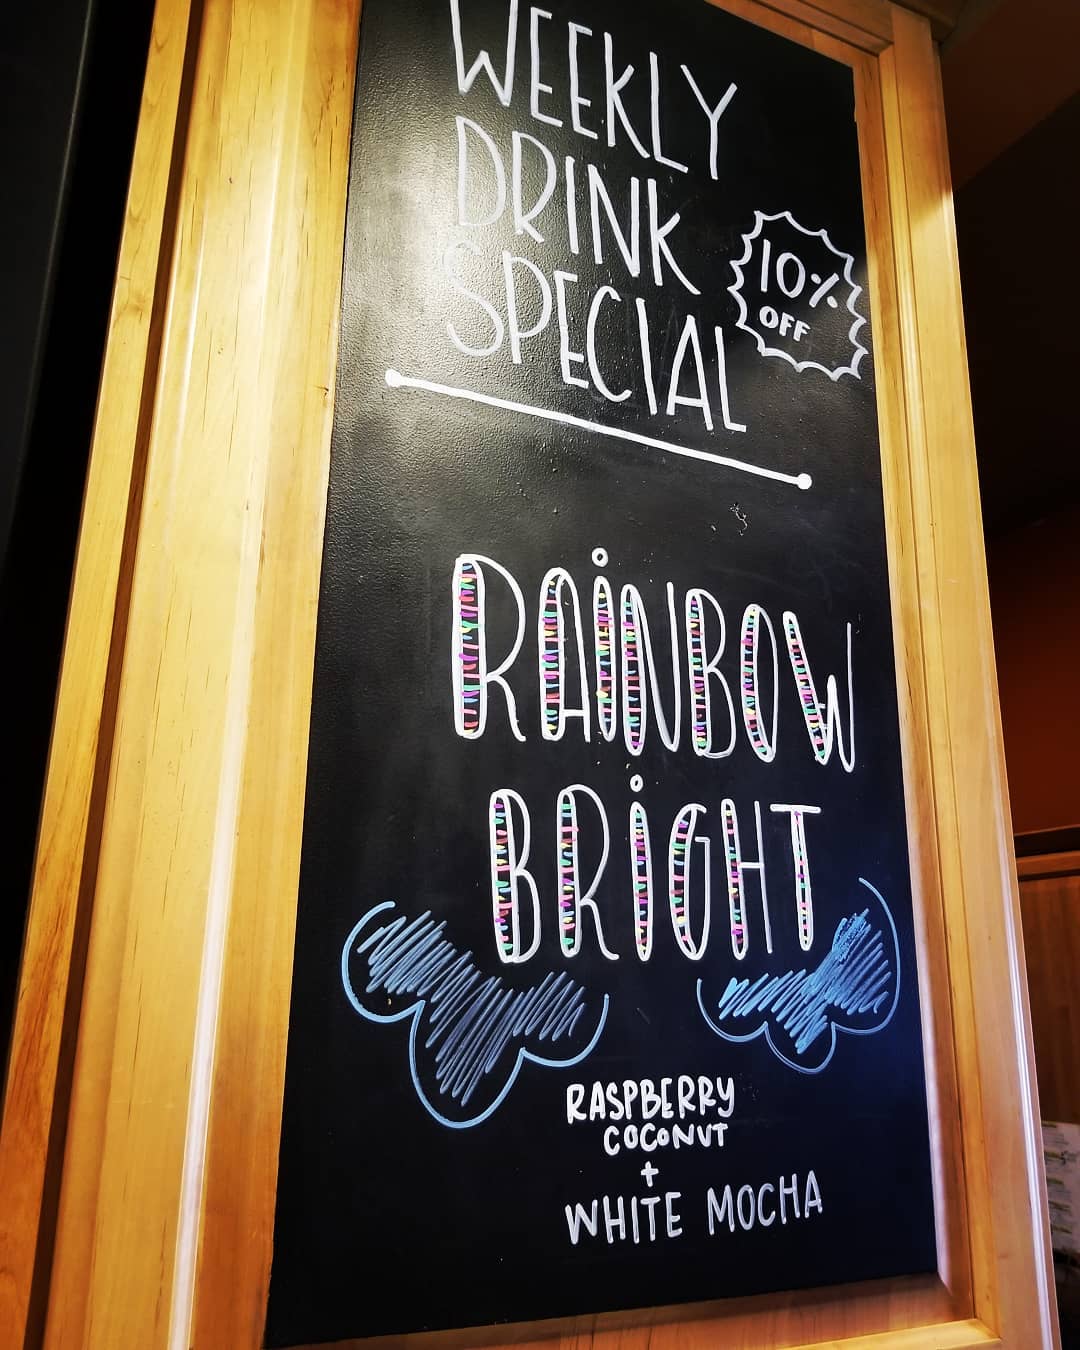 WEEKLY
DRINK
SPECIAL
10%
OFF
RAINBOW
BRIGHT
RASPBERRY
COCONUT
+
WHITE MOCHA